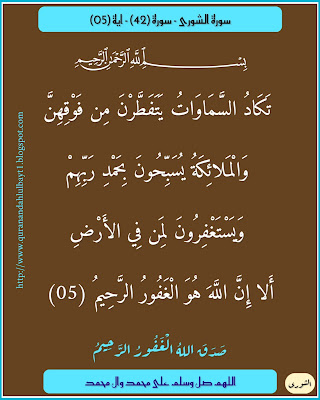 سورة الشورى - سورة (42) - اية (05)
بِسْمِ اللَّهِ الرَّحْمَٰنِ الرَّحِيمِ
تَكَادُ السَّمَاوَاتُ يَتَفَطَّرْنَ مِن فَوْقِهِنَّ
وَالْمَلَائِكَةُ يُسَبِّحُونَ بِحَمْدِ رَبِّهِمْ
وَيَسْتَغْفِرُونَ لِمَن فِي الْأَرْضِ
أَلَا إِنَّ اللَّهَ هُوَ الْغَفُورُ الرَّحِيمُ (05)
صَدَقَ اللهُ الْغَفُورُ الرَّحِيمُ
اللهم صل وسلم على محمد وال محمد
الشورى
http://www.quranandahlulbayt1.blogspot.com